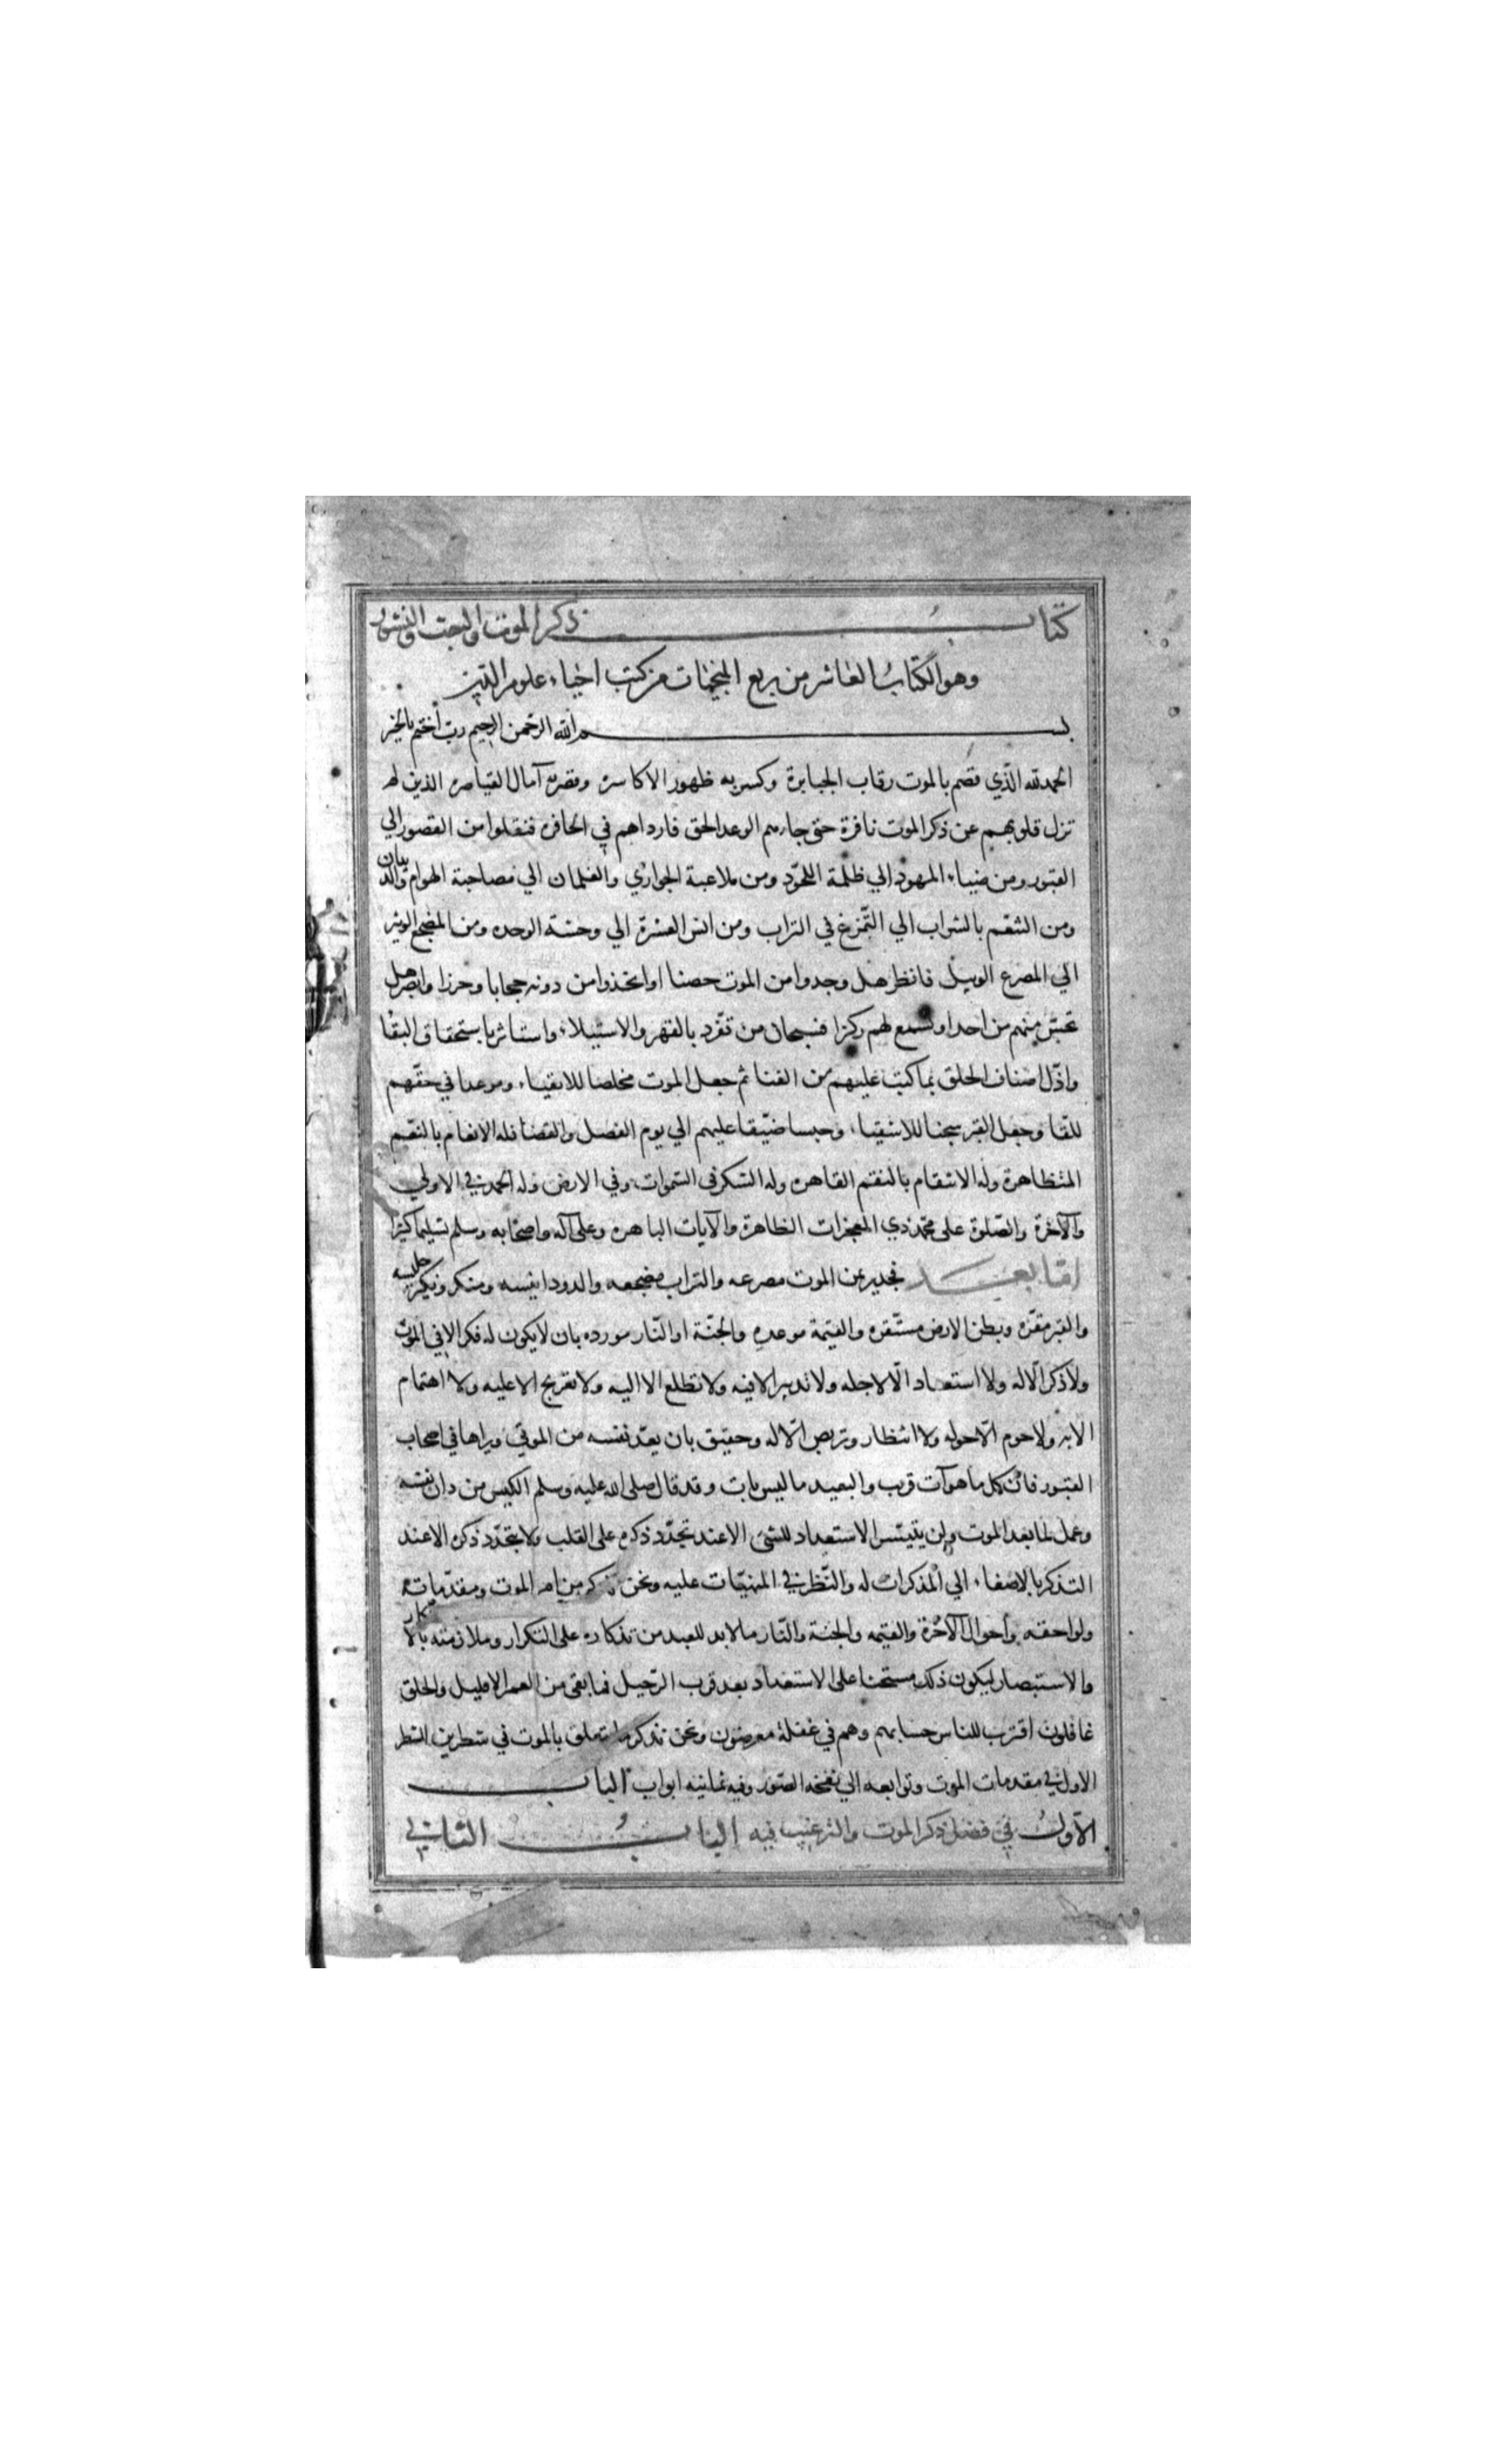 كتاب ذكر الموت والبعث والنشور
وهو الكتاب العاشر من ربع المنجيات من كتب احياء علوم الدين
بسم الله الرحمن الرحيم رب أختم بالخير
الحمد لله الذي قصم بالموت رقاب الجبابرة وكسر به ظهور الاكاسرة وقصر به آمال القياصرة الذين لم
تزل قلوبهم عن ذكر الموت نافرة حتى جاءهم الوعد الحق فارداهم في الحافرة فنقلوا من القصور الي
القبور ومن ضياء المهود الي ظلمة اللحود ومن ملاعبة الجواري والغلمان الي مصاحبة الهوام والديدان
ومن التنعم بالشراب الي التمرغ في التراب ومن انس العشرة الي وحشة الوحدة ومن المضجع الوثير
الي المصرع الوبيل فانظر هل وجدوا من الموت حصنا او اتخذوا من دونه حجابا وحرزا وانظر هل
تحس منهم من احد او تسمع لهم ركزا فسبحان من تفرد بالقهر والاستيلاء واستاثر باستحقاق البقا
واذل اصناف الخلق بما كتب عليهم من الفنا ثم جعل الموت مخلصا للاتقياء وموعدا في حقهم
للقا وجعل القبر سجنا للاشقياء وحبسا ضيقا عليهم الي يوم الفصل والقضا فله الانعام بالنعم
المتظاهرة وله الانتقام بالنقم القاهرة وله الشكر في السموات وفي الارض وله الحمد في الاولي
والآخرة والصلوة على محمد ذي المعجزات الظاهرة والآيات الباهرة وعلى آله واصحابه وسلم تسليما كثيرا
اما بعد فجدير بمن الموت مصرعه والتراب مضجعه والدود انيسه ومنكر ونكير جليسه
والقبر مقره وبطن الارض مستقره والقيمة موعده والجنة او النار مورده بان لا يكون له فكر الا في الموت
ولا ذكر الا له ولا استعداد الا لاجله ولا تدبير الا فيه ولا تطلع الا اليه ولا تعريج الا عليه ولا اهتمام
الا به ولا حوم الا حوله ولا انتظار وتربص الا له وحقيق بان يعد نفسه من الموتي ويراها في اصحاب
القبور فان كل ما هو آت قريب والبعيد ما ليس بات وقد قال صلى الله عليه وسلم الكيس من دان نفسه
وعمل لما بعد الموت ولن يتيسر الاستعداد للشئ الا عند تجدد ذكره على القلب ولا يتجدد ذكره الا عند
التذكر بالاصغاء الي المذكرات له والنظر في المنبهات عليه ونحن نذكر من امر الموت ومقدماته
ولواحقه وأحوال الآخرة والقيمه والجنة والنار ما لابد للعبد من تذكاره على التكرار وملازمته بالافتكار
والاستبصار ليكون ذلك مستحثا على الاستعداد بعد قرب الرحيل فما بقى من العمر الا قليل والخلق
غافلون اقترب للناس حسابهم وهم في غفلة معرضون ونحن نذكر ما يتعلق بالموت في شطرين الشطر
الاول في مقدمات الموت وتوابعه الي نفخة الصور وفيه ثمانيه ابواب الباب
الأول في فضل ذكر الموت والترغيب فيه الباب الثاني